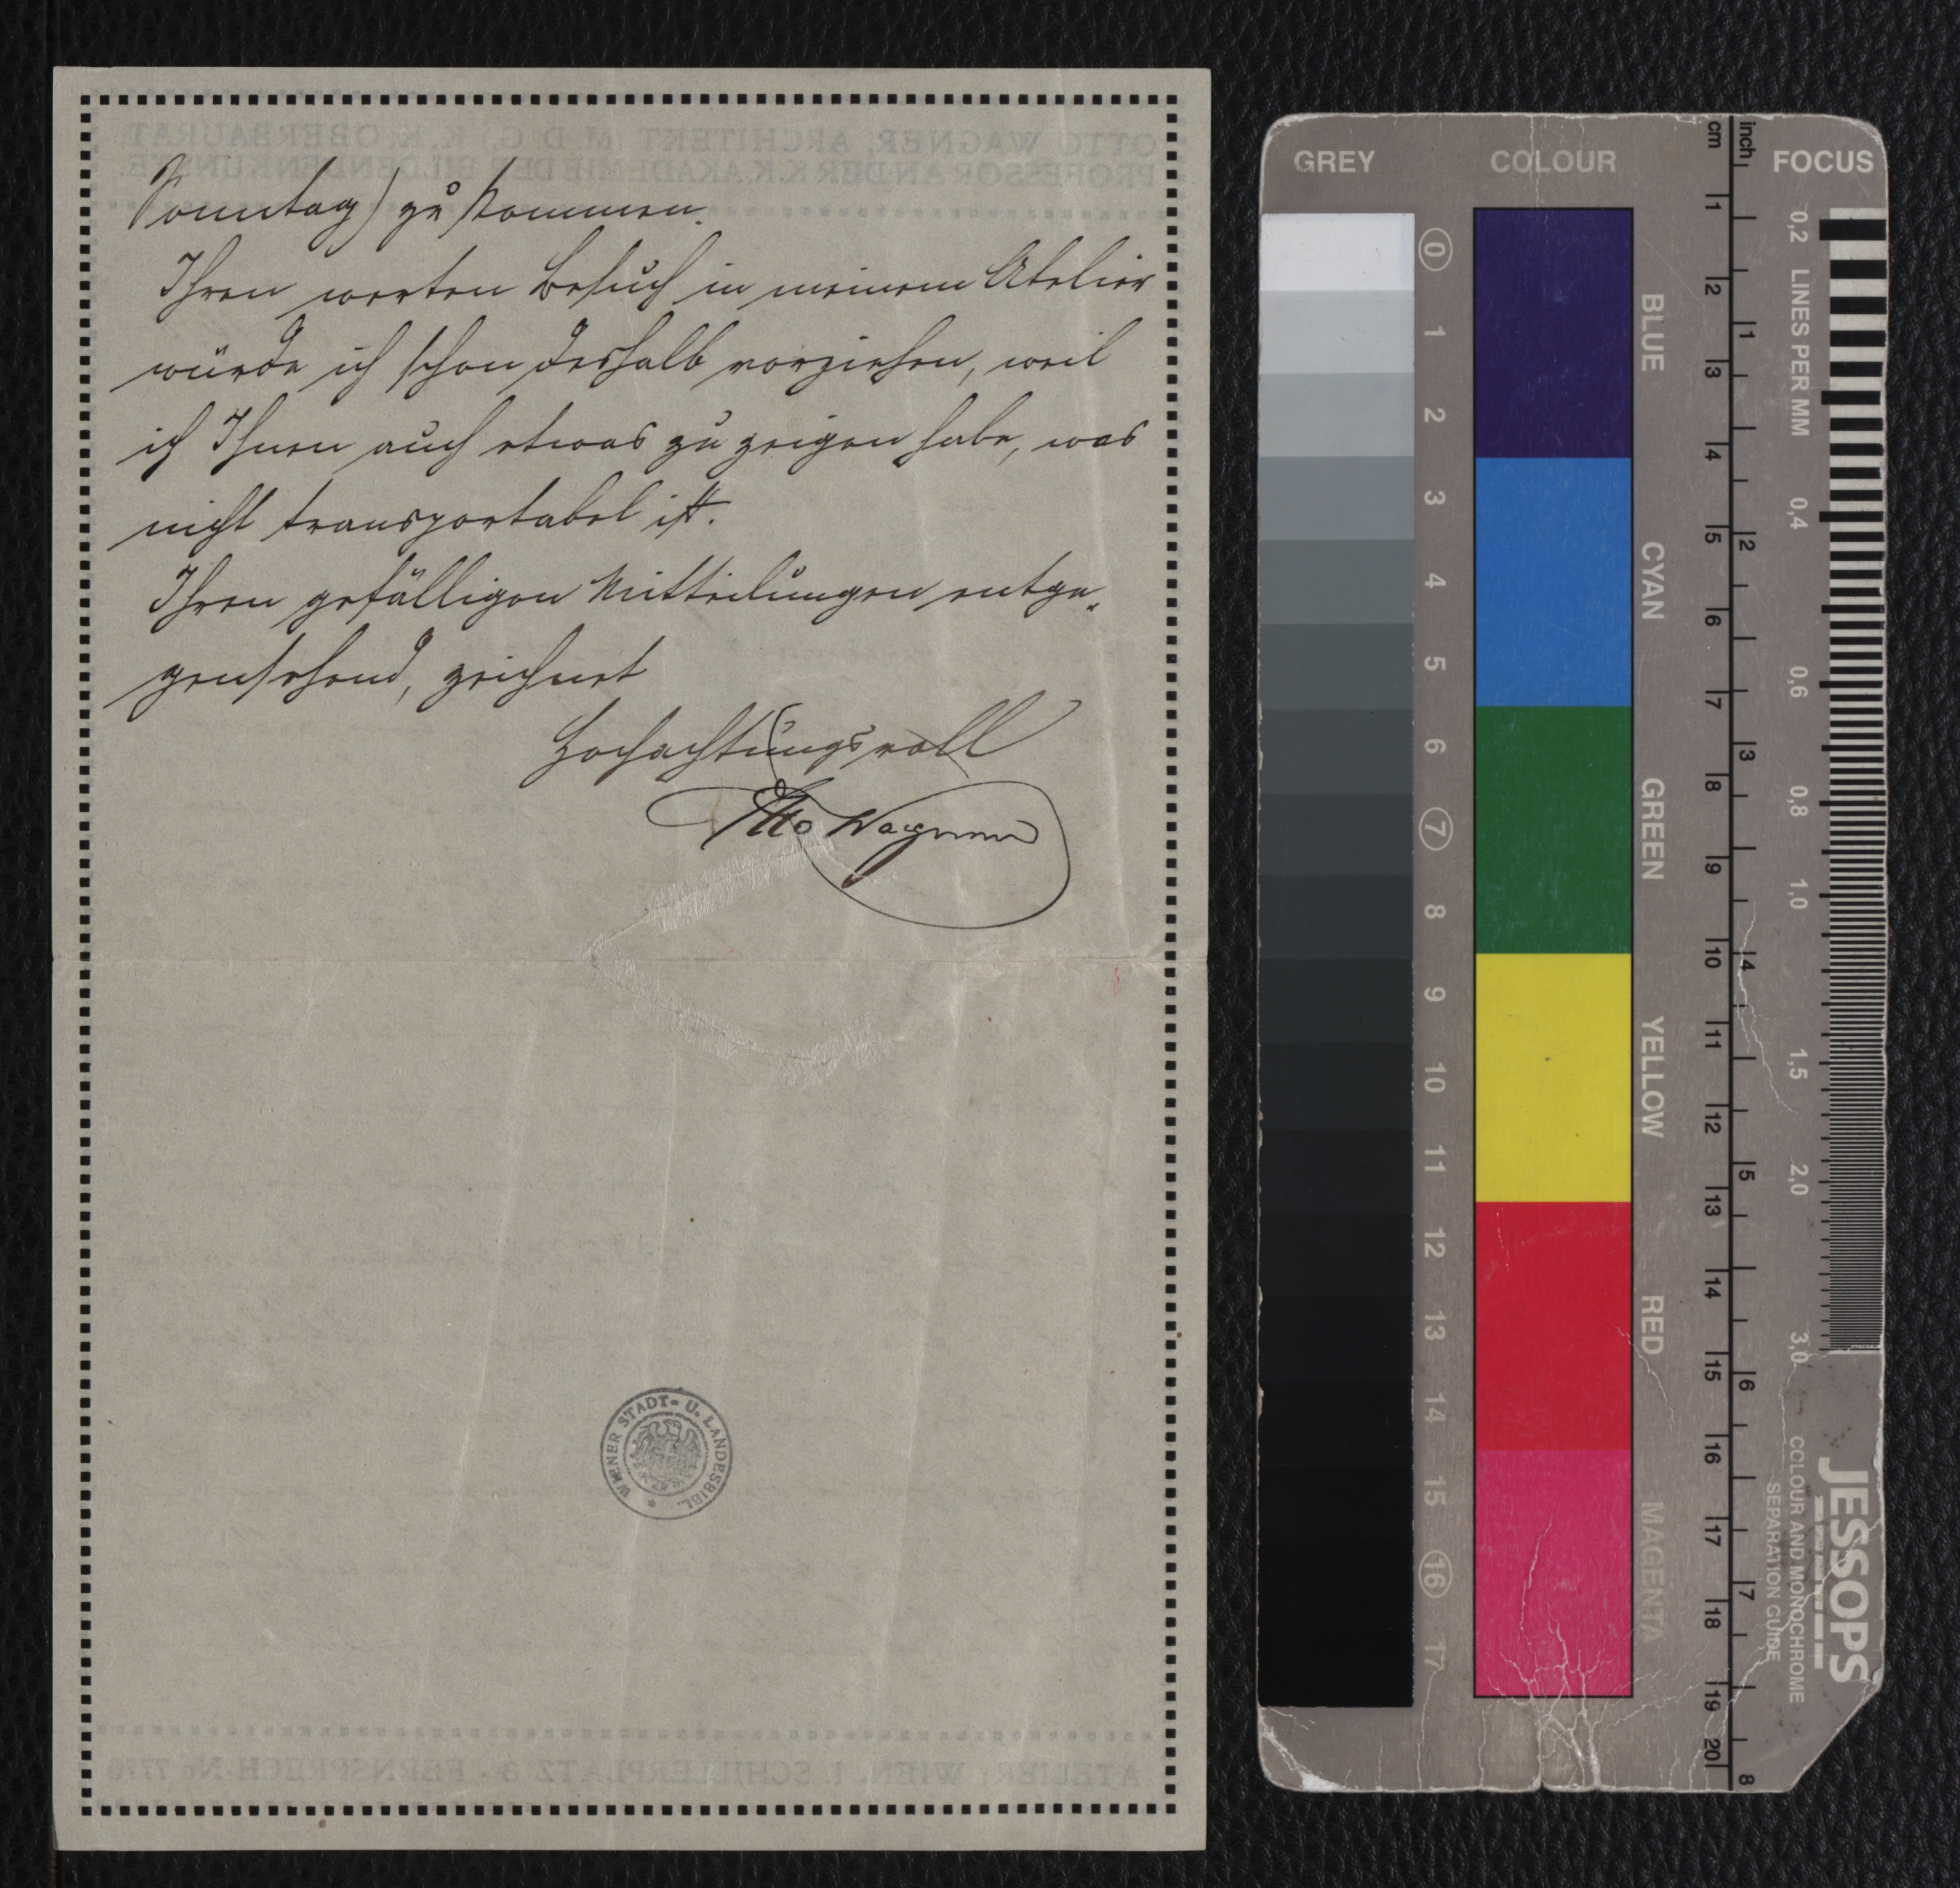 Sonntag) zu kommen.
Ihren werten Besuch in meinem Atelier
würde ich schon deshalb vorziehen, weil
ich Ihnen auch etwas zu zeigen habe, was
nicht transportabel ist.
Ihren gefälligen Mitteilungen entge„
gensehend, zeichnet
Hochachtungsvoll
Otto Wagner
WIENER STADT- U. LANDESBIBL.
OTTO WAGNER, ARCHITEKT (M D G) K. K. OBERBAURAT
PROFESSOR AN DER K. K. AKADEMIE DER BILDENDEN KÜNSTE.
ATELIER: WIEN, I. SCHILLERPLATZ 3 - FERNSPRECH-No 7776
GREY
COLOUR
cm
inch
FOCUS
0 1 2 3 4 5 6 7 8 9 10 11 12 13 14 15 16 17
BLUE
CYAN
GREEN
YELLOW
RED
MAGENTA
1 2 3 4 5 6 7 8 9 10 11 12 13 14 15 16 17 18 19 20
1 2 3 4 5 6 7 8
0,2 LINES PER MM 0,4 0,6 0,8 1,0 1,5 2,0 3,0
JESSOPS
COLOUR AND MONOCHROME
SEPARATION GUIDE